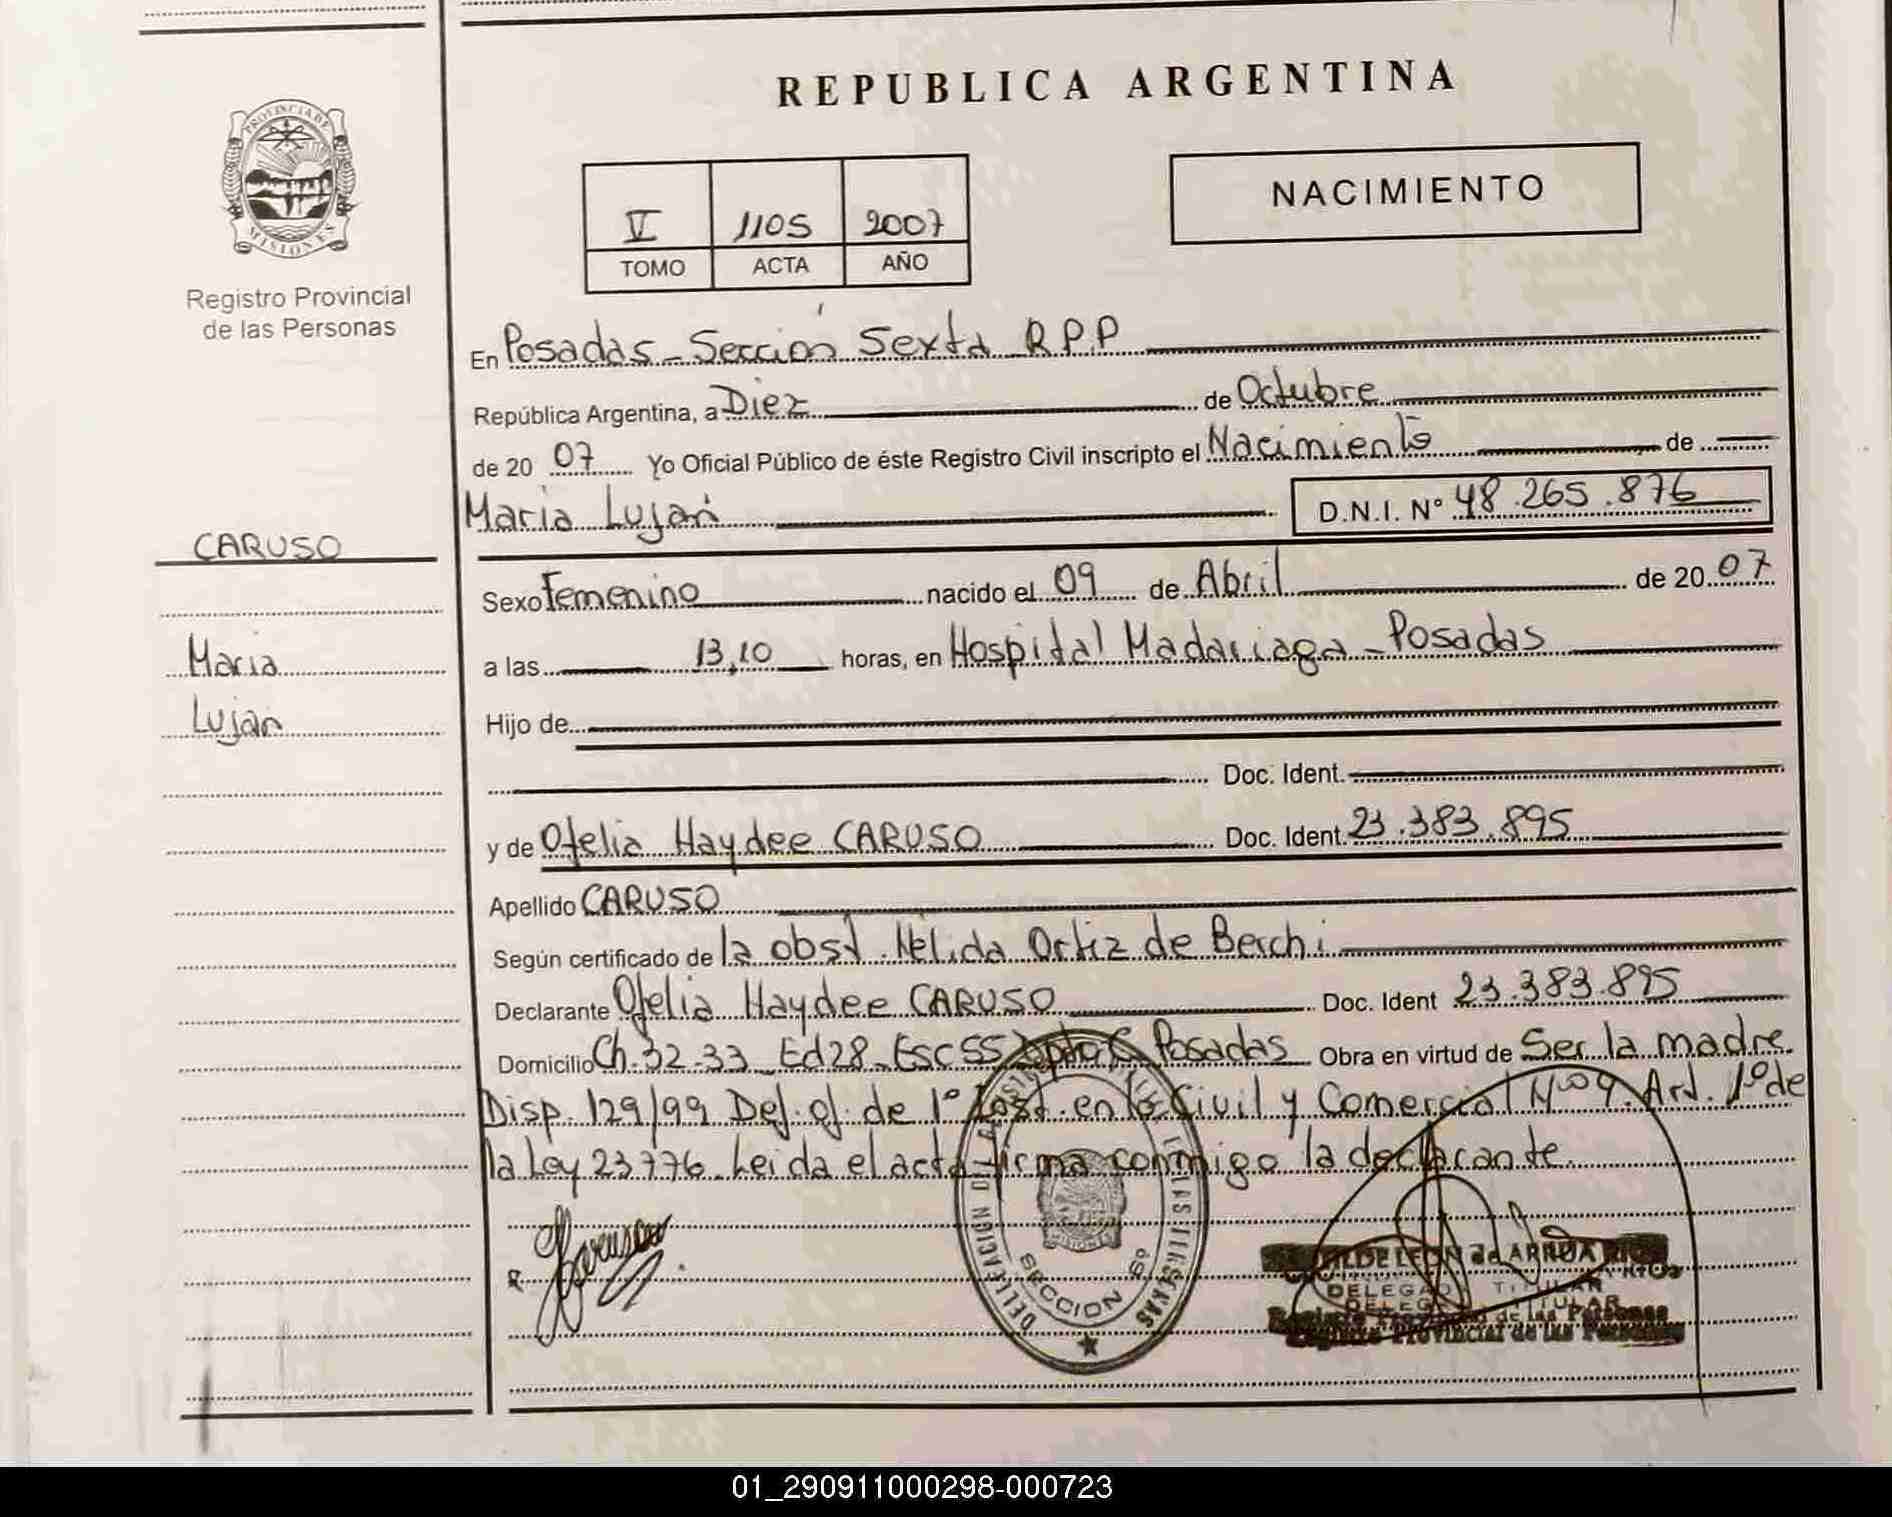 REPUBLICA ARGENTINA
PROVINCIA DE
MISIONES
Registro Provincial
de las Personas
V 1105 2007
TOMO ACTA AÑO
NACIMIENTO
En Posadas - Sección Sexta R.P.P
República Argentina, a Diez de Octubre
de 20 07 Yo Oficial Público de éste Registro Civil inscripto el Nacimiento de
Maria Lujan D.N.I. N° 48.265.876
CARUSO
Sexo Femenino nacido el 09 de Abril de 20 07
Maria
a las 13,10 horas, en Hospital Madariaga - Posadas
Lujan
Hijo de
Doc. Ident.
y de Ofelia Haydee CARUSO Doc. Ident. 23.383.895
Apellido CARUSO
Según certificado de la obst. Nélida Ortiz de Berchi
Declarante Ofelia Haydee CARUSO Doc. Ident 23.383.895
Domicilio Ch. 32-33 Ed28 - Esc SS Dpto C Posadas Obra en virtud de Ser la madre.
Disp. 129/99 Def. of. de 1° Inst. en lo Civil y Comercial N° 9. Art. 1° de
la Ley 23776. Leida el acta firma conmigo la declarante
SECCION 6º
DE LEON de ARRUA RIOS
DELEGADO TITULAR
Registro Provincial de las Personas
01_290911000298-000723